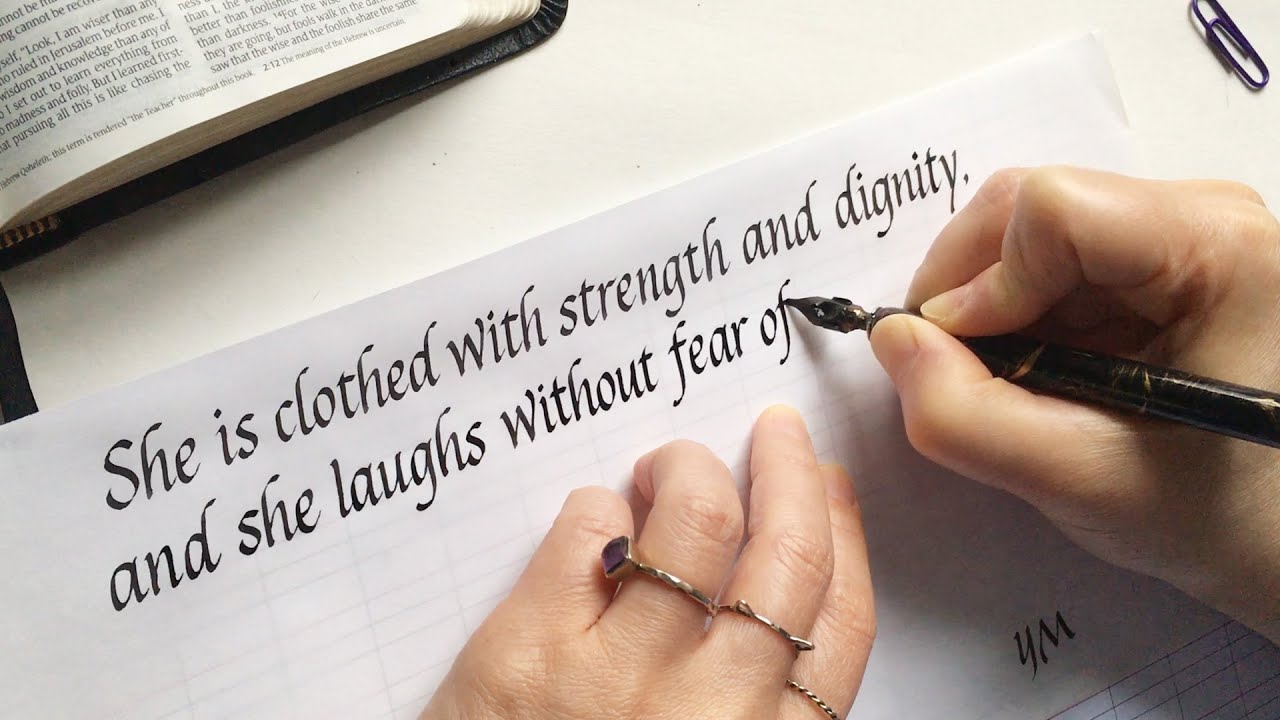 not be ma
ng cannot be recover
yself, "Look, I am wiser than any
ho ruled in Jerusalem before me. I
wisdom and knowledge than any of
o I set out to learn everything from
o madness and folly. But I learned first-
hat pursuing all this is like chasing the
Hebrew Qoheleth; this term is rendered "the Teacher" throughout this book.
than I, the
better than foolishnes
than darkness. 14For the wise
they are going, but fools walk in the da
saw that the wise and the foolish share the same
2:12 The meaning of the Hebrew is uncertain.
She is clothed with strength and dignity,
and she laughs without fear of
YM